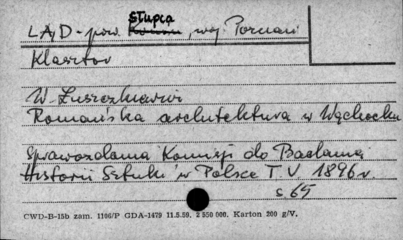 Słupca
LĄD - pow. Konin, woj. Poznań
Klasztor
W. Łuszczkiewicz
Romańska architektura w Wąchocku
Sprawozdania Komisji do Badania
Historii Sztuki w Polsce T. V. 1896 r.
s. 65
CWD-B-15b zam. 1106/P GDA-1479 11.5.59. 2 350 000. Karton 200 g/V.